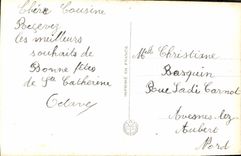 Chère Cousine
Recevez
les meilleurs
souhaits de
Bonne fête
de Ste Catherine
Octave
Mlle Christiane
Basquin
Rue Sadi Carnot
Avesnes-lez-
Aubert
Nord